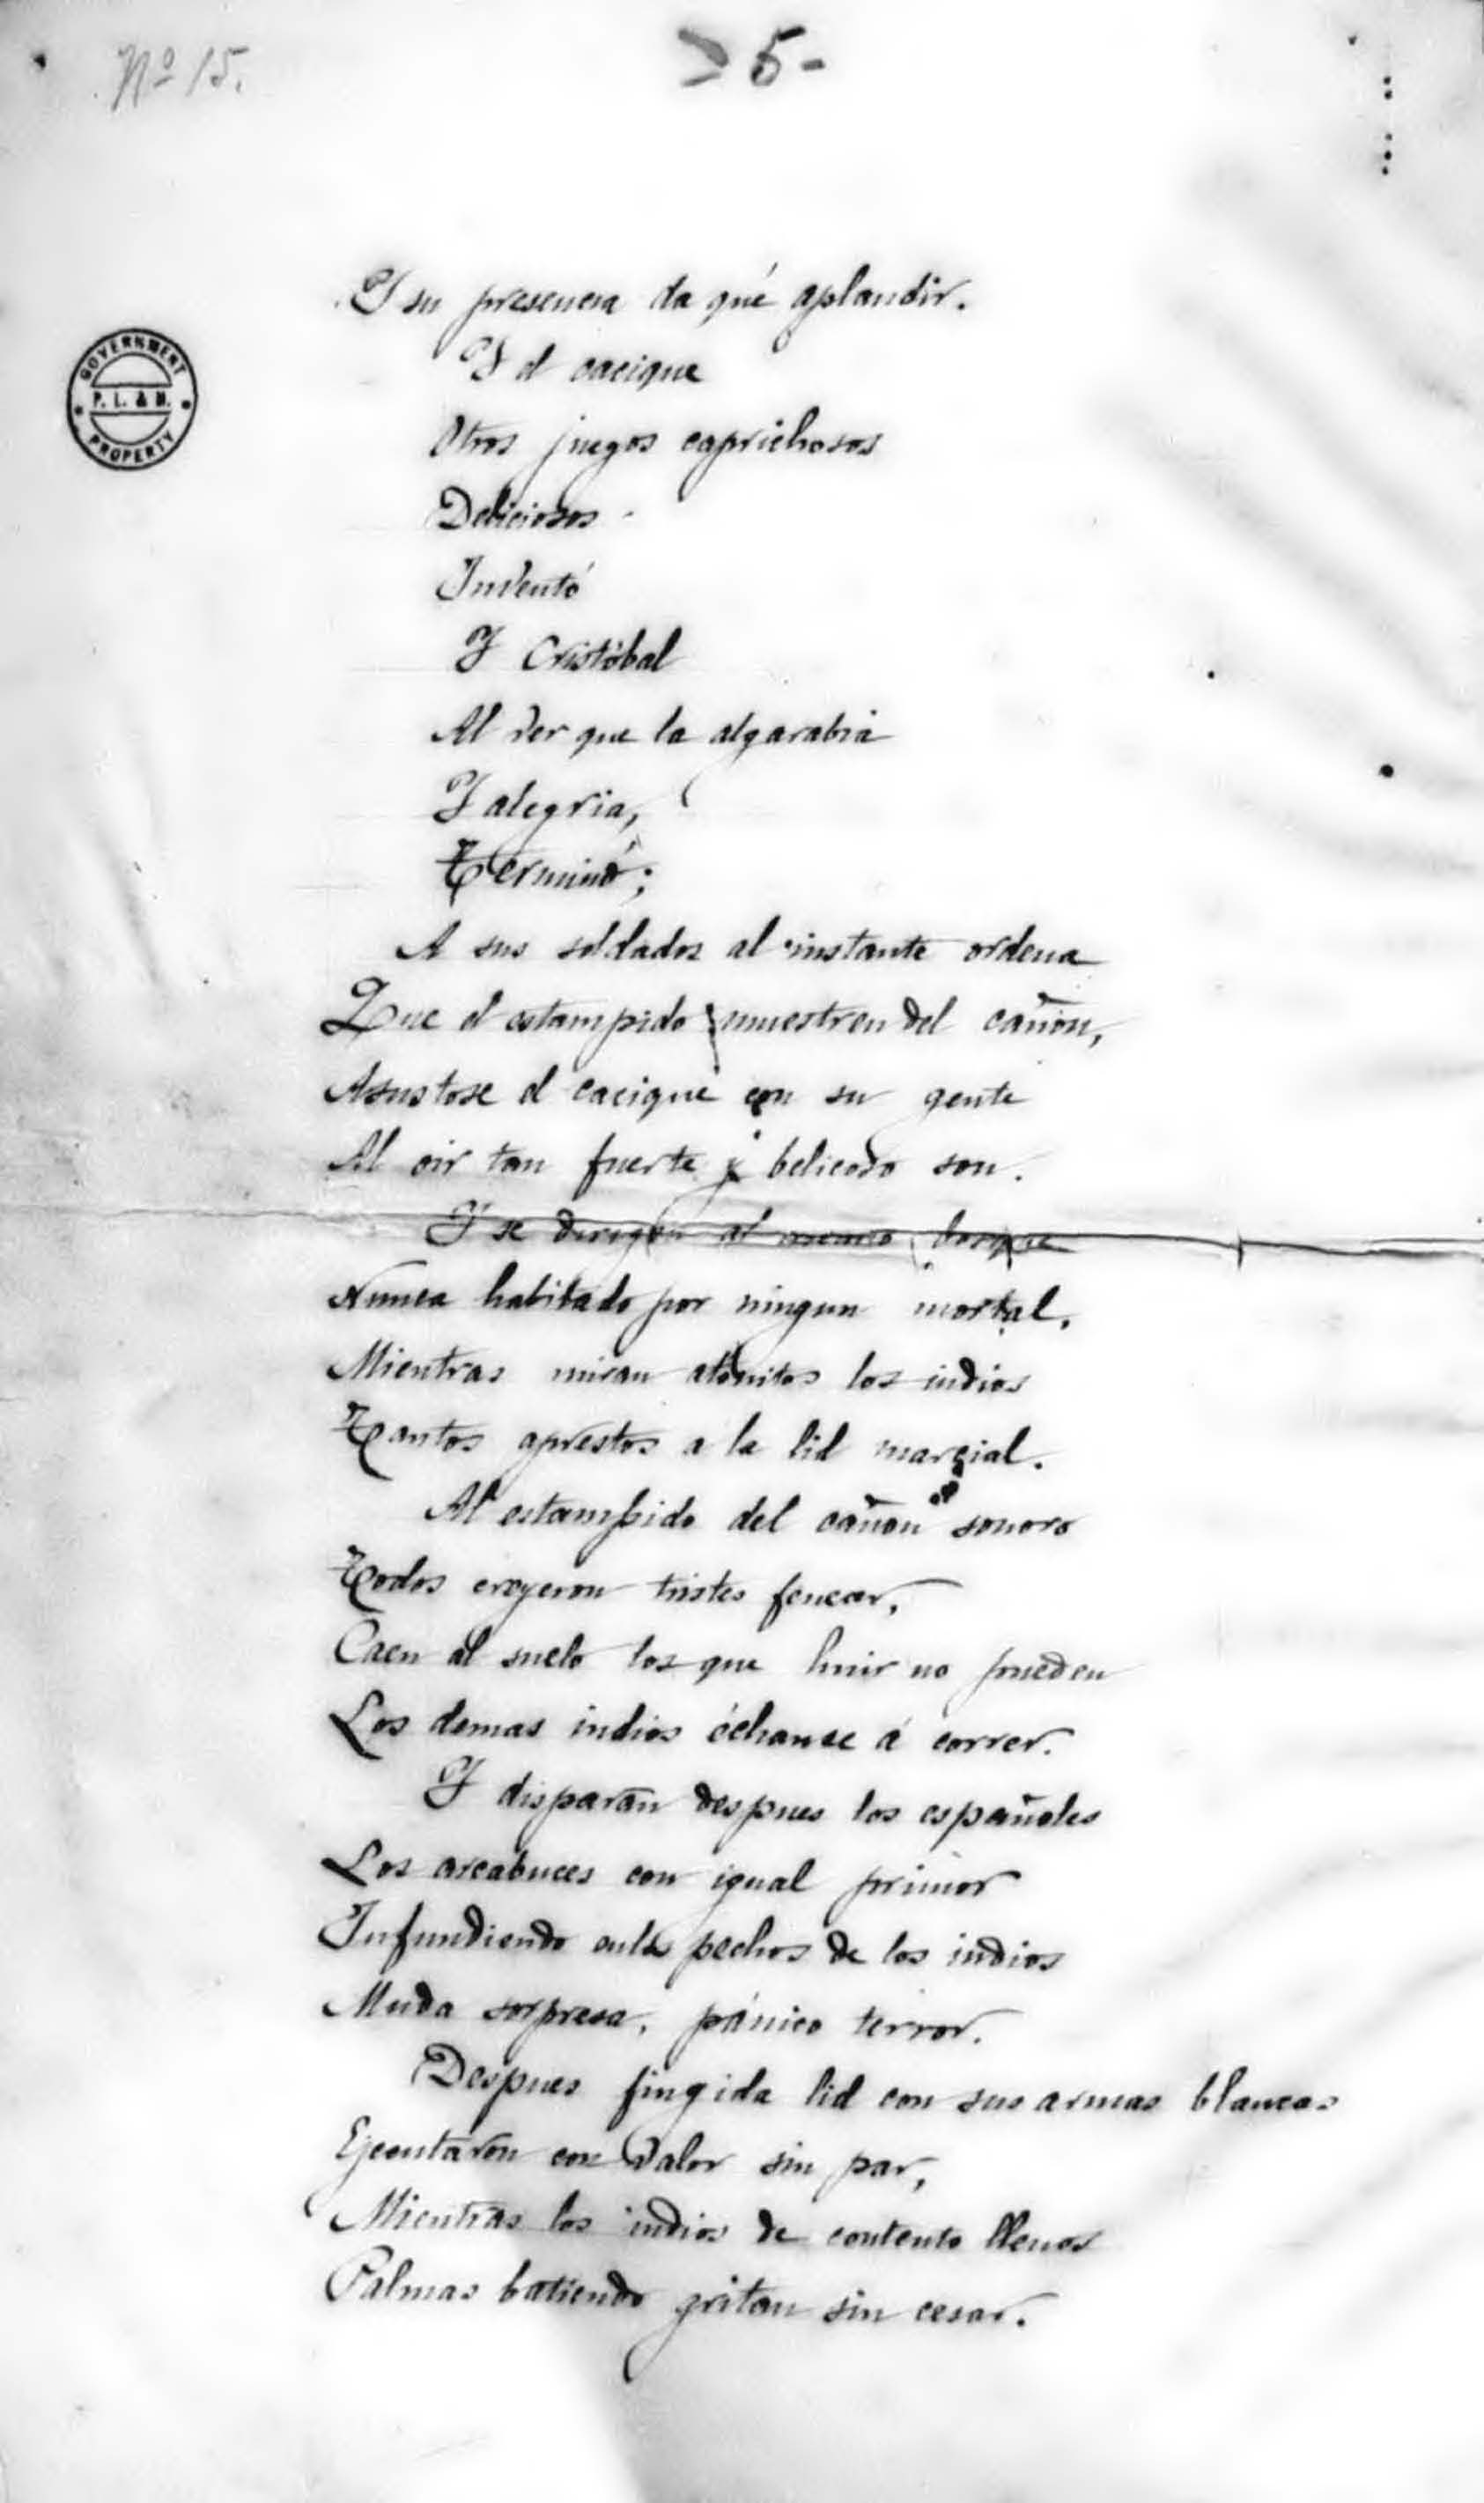 Nº 15.
5-
GOVERNMENT
P. L. & M.
PROPERTY
Y su presencia da qué aplaudir.
Y el cacique
Otros juegos caprichosos
Deliciosos
Inventó
Y Cristóbal
Al ver que la algarabia
Y alegria,
Terminó;
A sus soldados al instante ordena
Que el estampido muestren del cañon,
Asustose el cacique con su gente
Al oir tan fuerte y belicoso son.
Y se dirigen al bosque
Nunca habitado por ningun mortal.
Mientras miran atónitos los indios
Tantos aprestos a la lid marcial.
Al estampido del cañon sonoro
Todos creyeron tristes fenecer,
Caen al suelo los que huir no pueden
Los demas indios échanse á correr.
Y disparan despues los españoles
Los arcabuces con igual primor
Infundiendo en los pechos de los indios
Muda sorpresa, pánico terror.
Despues fingida lid con sus armas blancas
Ejecutaron con valor sin par,
Mientras los indios de contento llenos
Palmas batiendo gritan sin cesar.